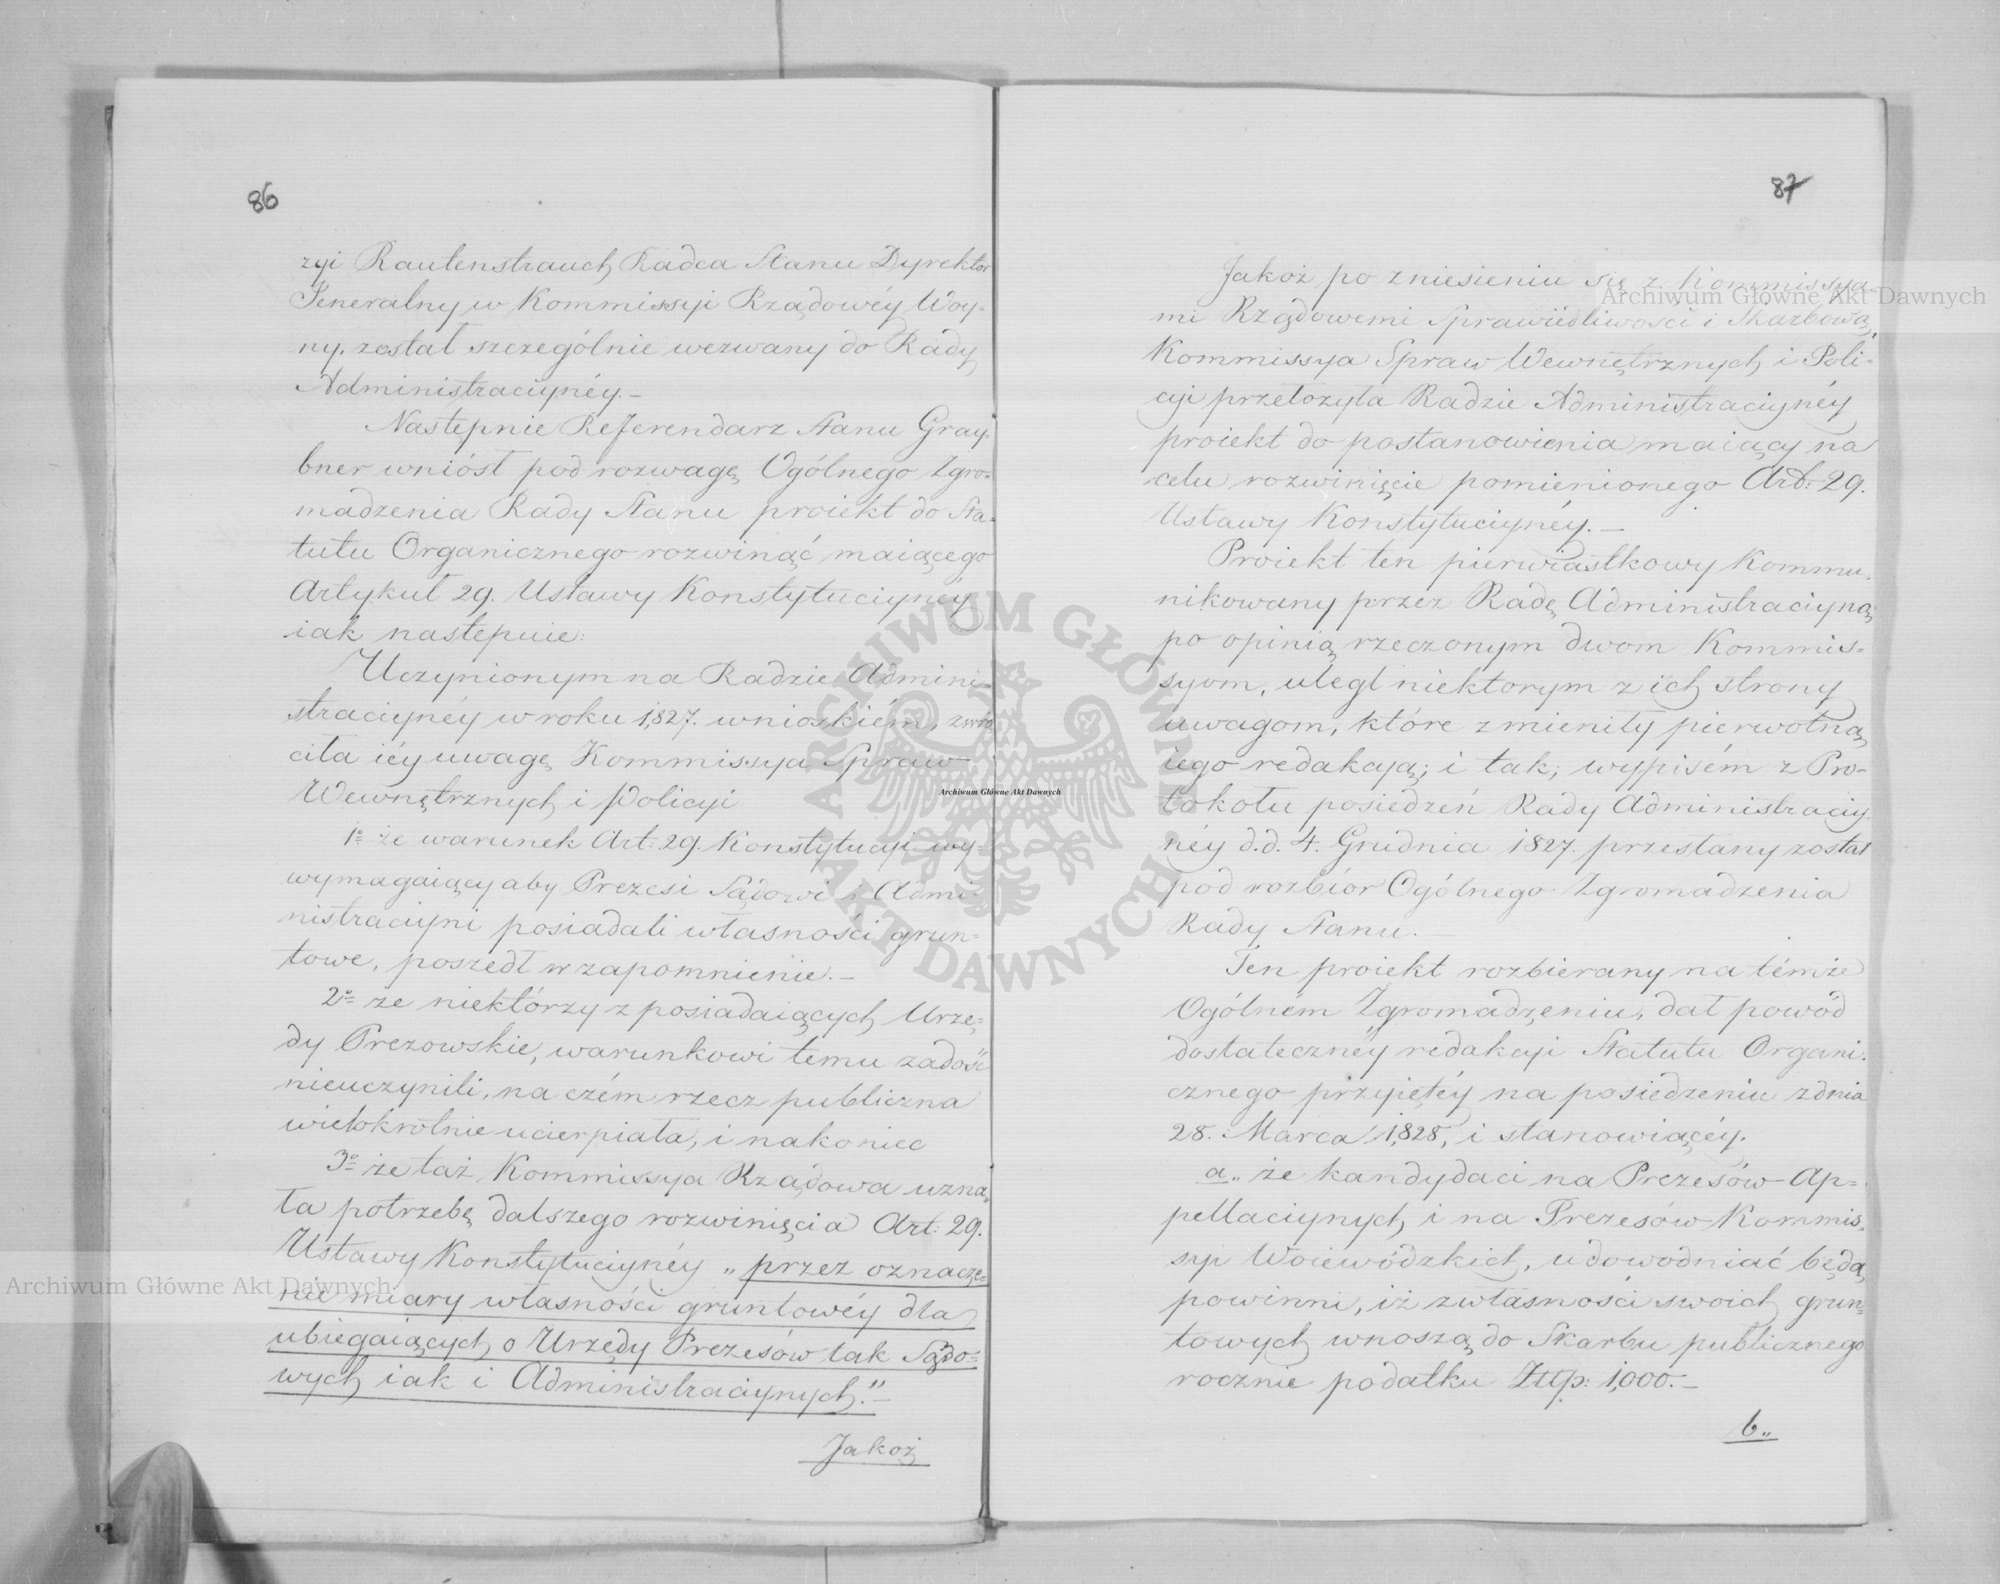 86
zyi Rautenstrauch Radca Stanu Dyrektor
Jeneralny w Kommissyi Rządowéy Woy-
ny. został szczególnie wezwany do Rady
Administracyinéy.—
Następnie Referendarz Stanu Gray-
bner wniósł pod rozwagę Ogólnego Zgro-
madzenia Rady Stanu proiekt do Sta-
tutu Organicznego rozwinąć maiącego
Artykuł 29. Ustawy Konstytucyinéy
iak nastepuie:
Uczynionym na Radzie Admini-
stracyinéy w roku 1827. wnioskiém, zwró
ciła iéy uwagę Kommissya Spraw
Wewnętrznych i Policyi
1º że warunek Art: 29. Konstytucyi wy-
wymagaiący aby Prezesi Sądowi i Admi-
nistracyini posiadali własności grun-
towe, poszedł w zapomnienie.—
2º że niektórzy z posiadaiących Urzę-
dy Prezowskie, warunkowi temu zadość
nieuczynili, na czém rzecz publiczna
wielokrotnie ucierpiała, i nakoniec
3º że taż Kommissya Rządowa uzna-
ła potrzebę dalszego rozwinięcia Art: 29.
Ustawy Konstytucyinéy „przez oznacze-
nie miary własności gruntowéy dla
ubiegaiących o Urzędy Prezesów tak Sądo-
wych iak i Administracyinych."—
Jakoż
87
Jakoż po zniesieniu się z Kommissya-
mi Rządowemi Sprawiedliwości i Skarbową,
Kommissya Spraw Wewnętrznych i Poli-
cyi przełożyła Radzie Administracyinéy
proiekt do postanowienia maiący na
celu rozwinięcie pomienionego Art: 29.
Ustawy Konstytucyinéy.—
Proiekt ten pierwiastkowy Kommu-
nikowany przez Radę Administracyiną
po opinią rzeczonym dwom Kommis-
syom, uległ niektorym z ich strony
uwagom, które zmieniły pierwotną
iego redakcją; i tak, wypisém z Pro-
tokołu posiedzeń Rady Administracyi-
néy d.d. 4. Grudnia 1827. przesłany został
pod rozbiór Ogólnego Zgromadzenia
Rady Stanu.—
Ten proiekt rozbierany na témże
Ogólném Zgromadzeniu, dał powód
dostatecznéy redakcyi Statutu Organi-
cznego przyiętéy na posiedzeniu z dnia
28. Marca 1828, i stanowiącéy.
a„ że kandydaci na Prezesów Ap-
pellacyinych i na Prezesów Kommis-
syi Woiewódzkich, udowodniać będą
powinni, iż z własności swoich grun-
towych wnoszą do Skarbu publicznego
rocznie podatku Złłp: 1,000.—
b„
Archiwum Główne Akt Dawnych
Archiwum Główne Akt Dawnych
Archiwum Główne Akt Dawnych
ARCHIWUM GŁÓWNE AKT DAWNYCH